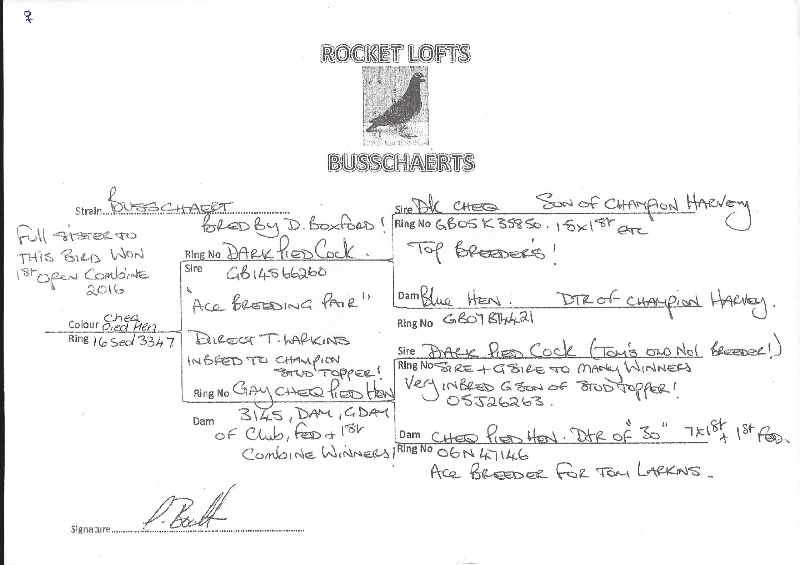 ♀
ROCKET LOFTS
BUSSCHAERTS
Strain BUSSCHAERT
BRED BY D. BOXFORD!
FULL SISTER TO
THIS BIRD WON
1st OPEN COMBINE
2016
Colour CHEQ PIED HEN
Ring 16 Sed 3347
Ring No DARK PIED COCK.
Sire GB14S66260
"ACE BREEDING PAIR"
DIRECT T. LARKINS
INBRED TO CHAMPION
STUD TOPPER!
Ring No GAY CHEQ PIED HEN
Dam 3145, DAM, GDAM
OF CLUB, FED + 1st
COMBINE WINNERS!
Sire DK CHEQ SON OF CHAMPION HARVEY
Ring No GB05K35950. 15x1st ETC
TOP BREEDER'S!
Dam BLUE HEN. DTR OF CHAMPION HARVEY.
Ring No GB07B14421
Sire DARK PIED COCK (TOM'S OLD NO1 BREEDER!)
Ring No SIRE + G SIRE TO MANY WINNERS
VERY INBRED G SON OF STUD TOPPER!
05J26263.
Dam CHEQ PIED HEN. DTR OF "30" 7x1st + 1st FED.
Ring No 06N47146
ACE BREEDER FOR TOM LARKINS.
Signature